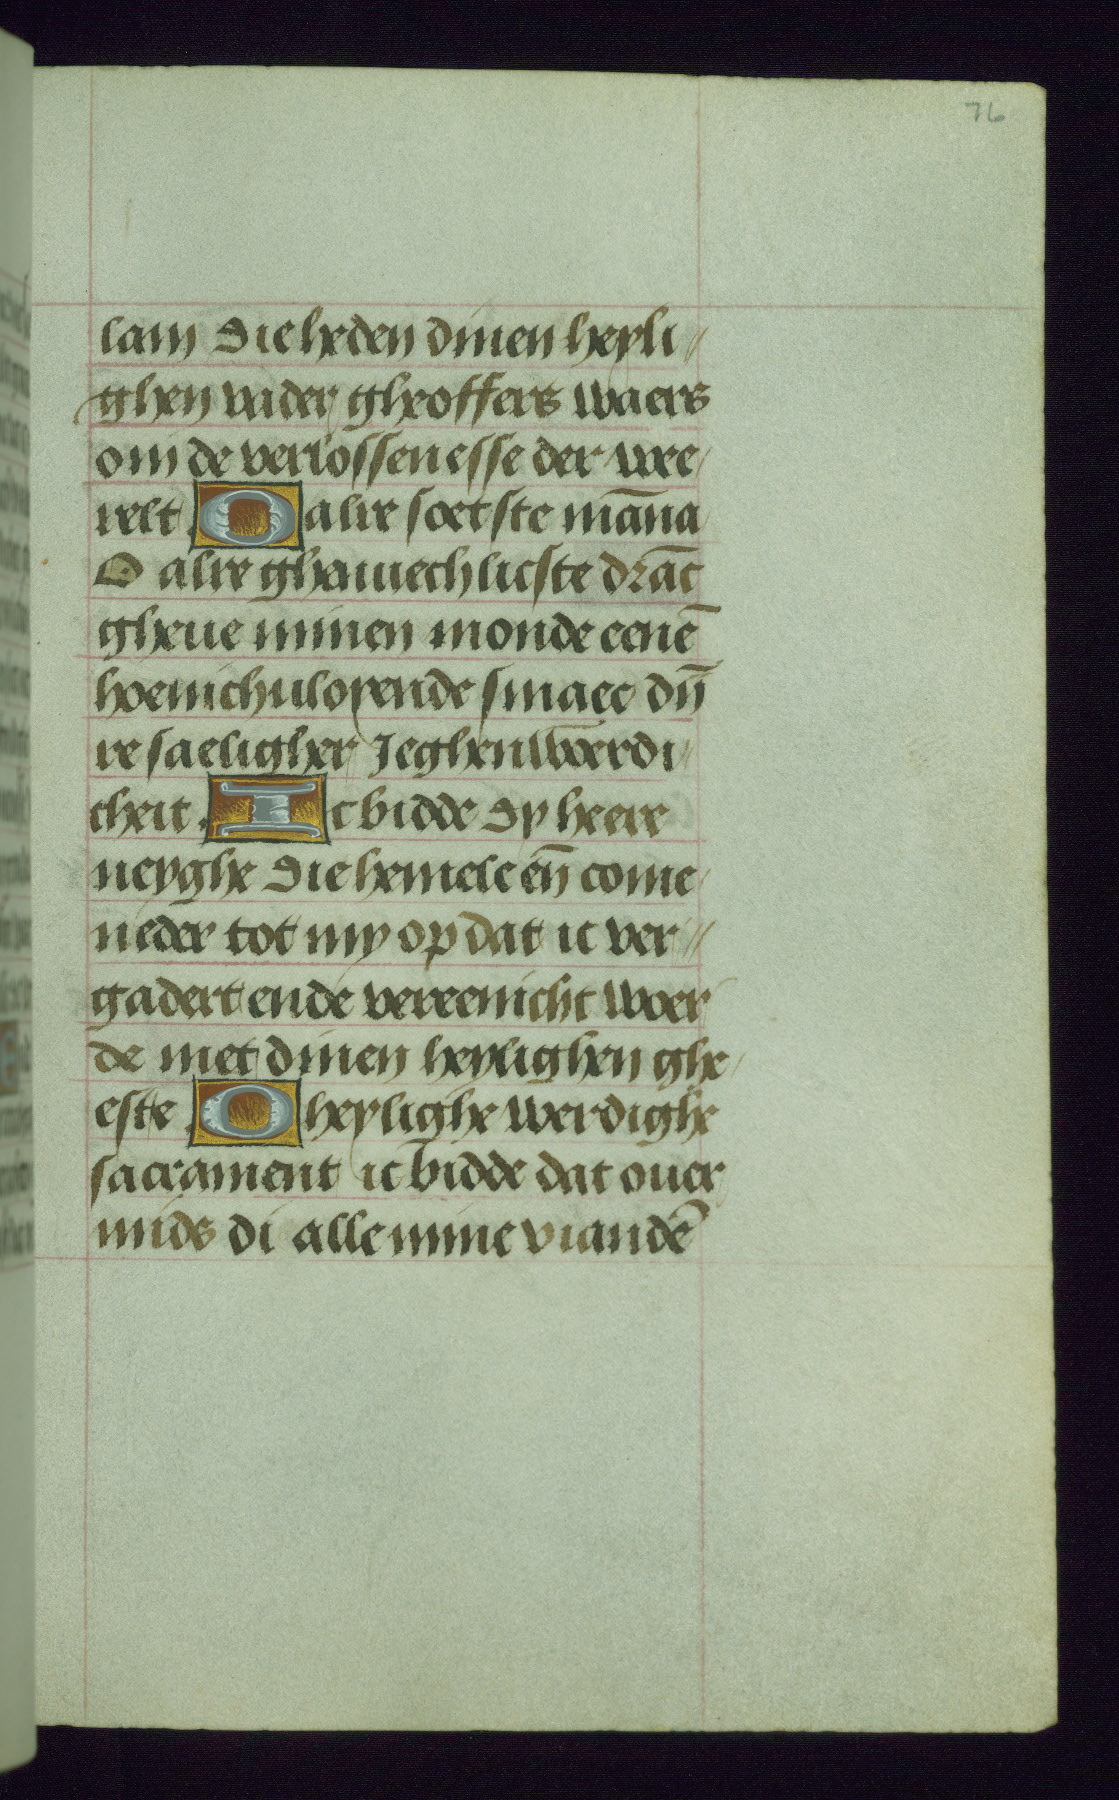 76
lam die heden dinen heyli
ghen vader gheoffers waers
om de verlossenesse der wee
relt. O alre soetste māna
O alre ghanuechlicste drāc
gheue minen monde eenē
hoenichuloyende smaec dīj
re saeligher Jeghenwoerdi
cheit. Ic bidde dy heere
neyghe die hemele eñ come
neder tot my op dat ic ver
gadert ende vereenicht woer
de met dinen heylighen ghe
este. O heylighe werdighe
sacrament ic bidde dat ouer
mids di alle mine viandē